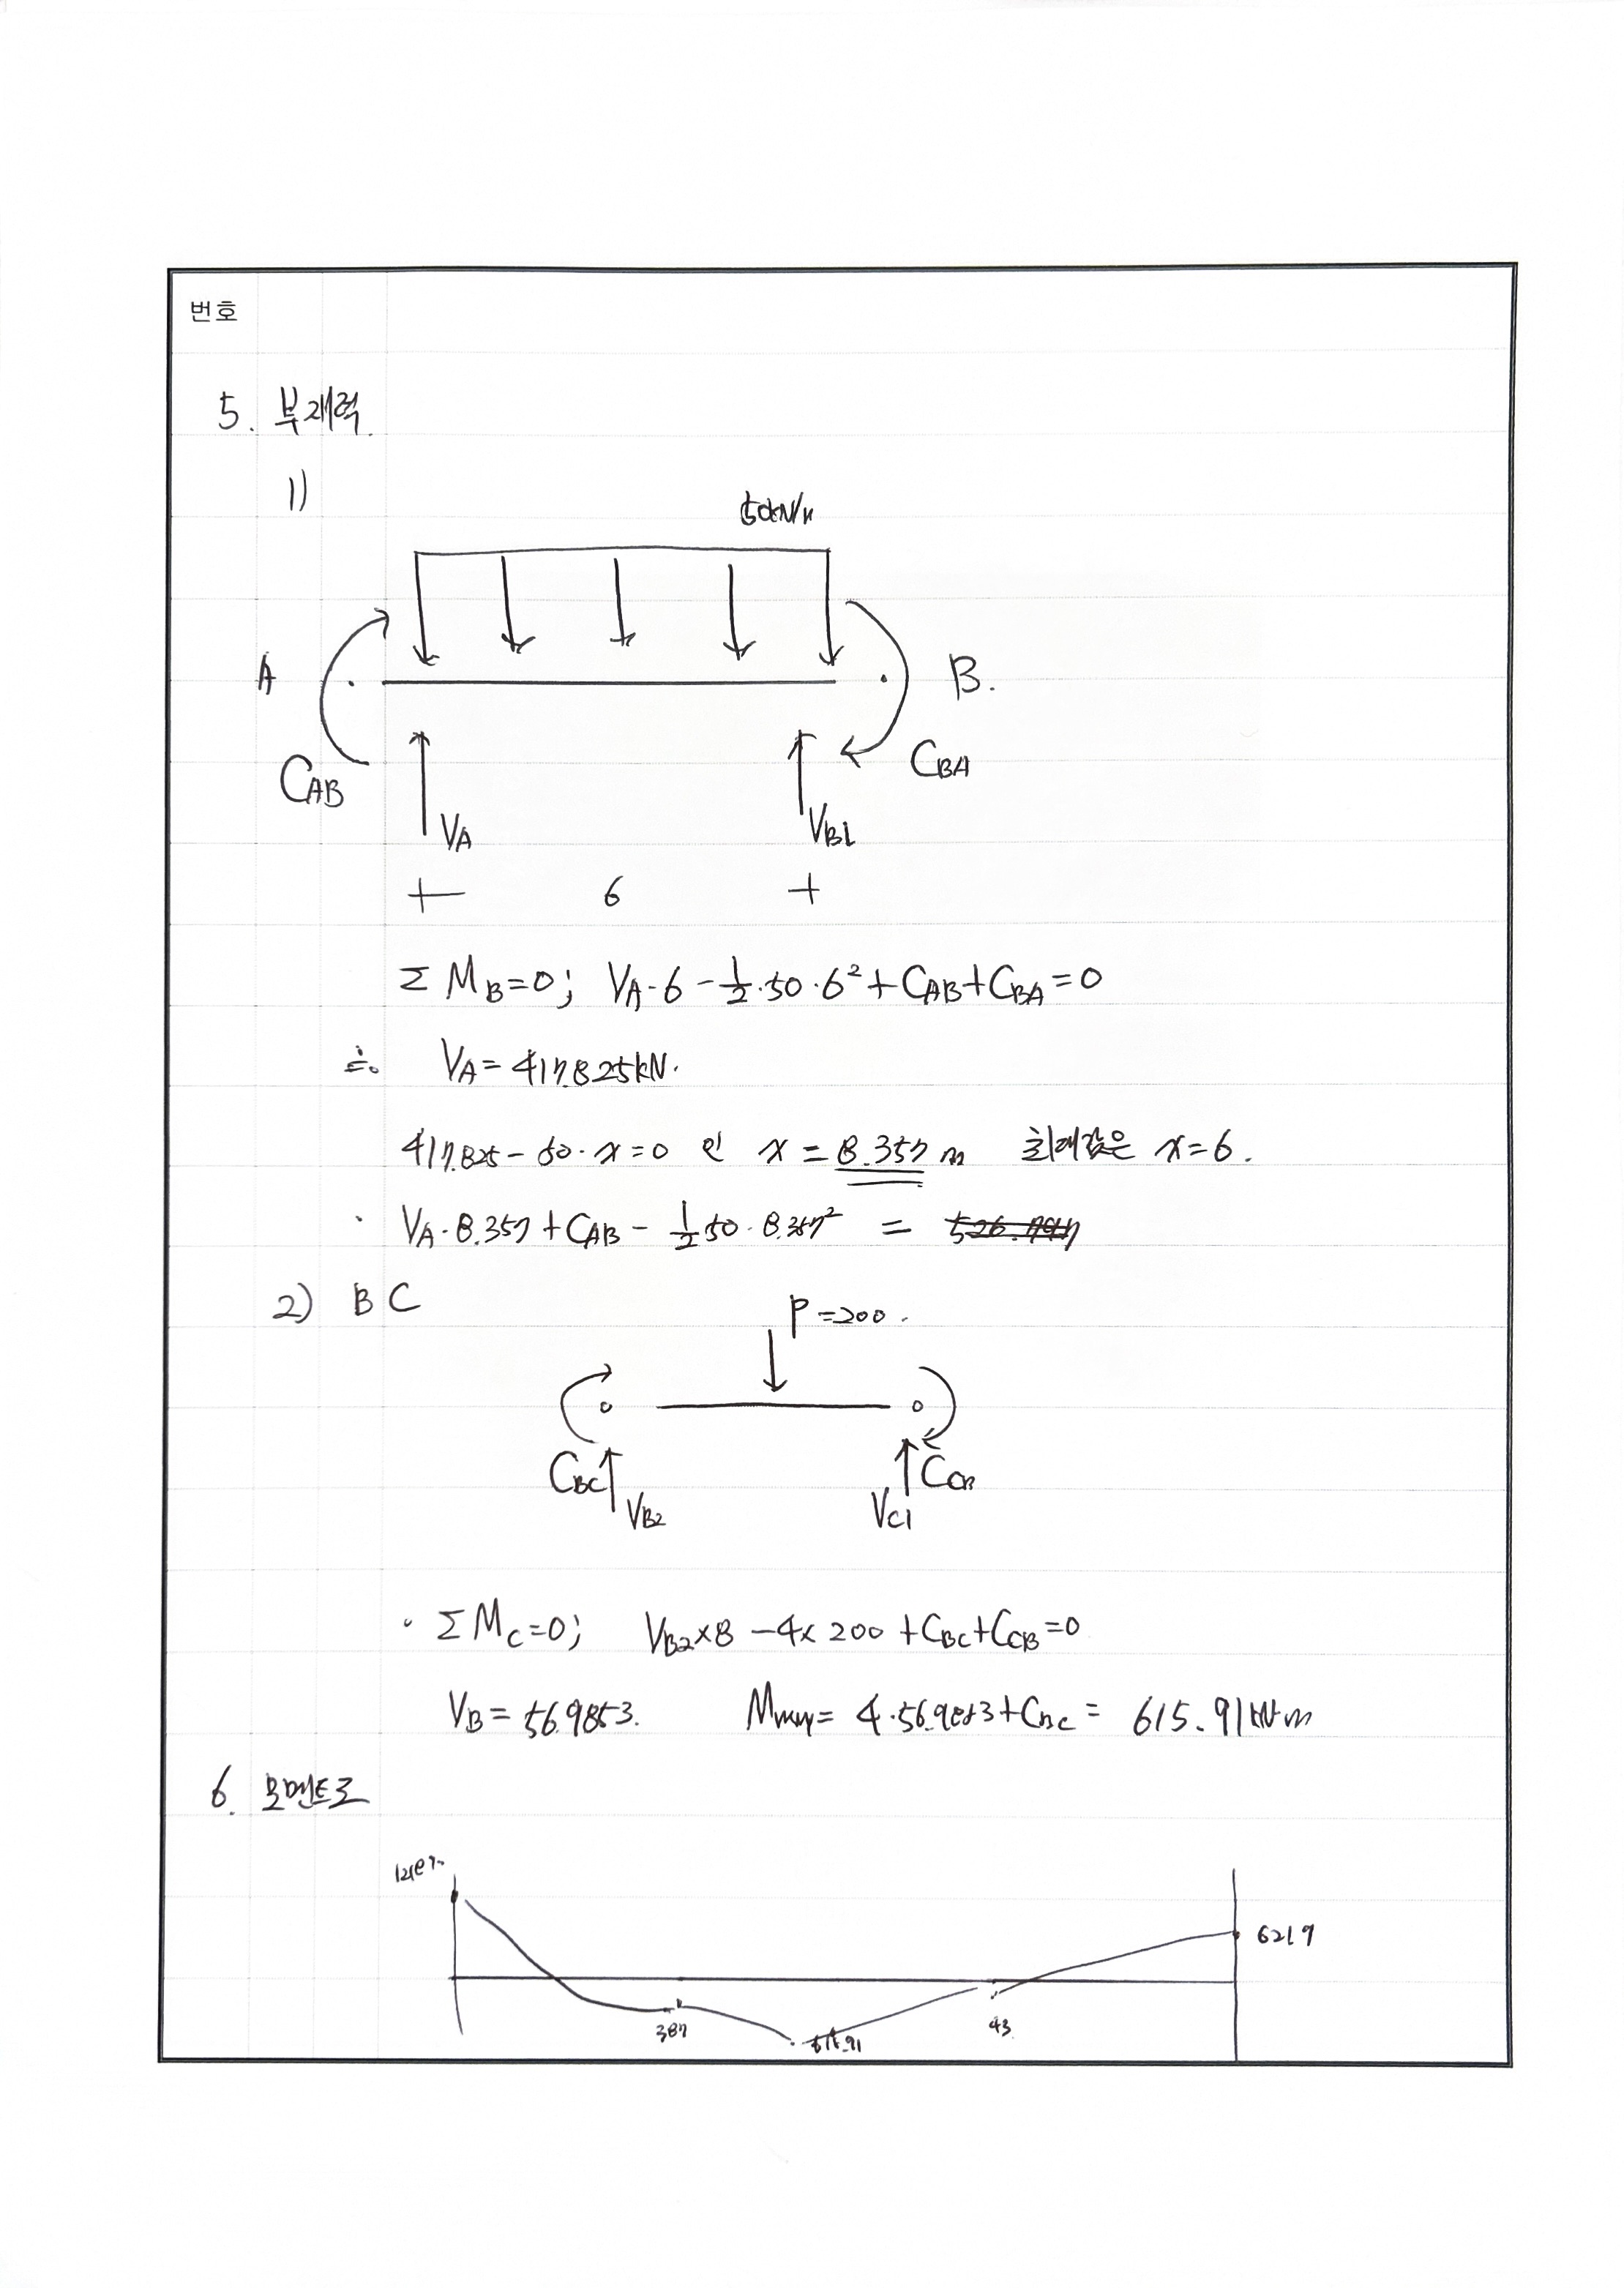 번호
5. 부재력.
1)
50kN/m
A
B.
C_AB
C_BA
V_A
V_B1
6
Σ M_B=0; V_A·6 - 1/2·50·6² + C_AB + C_BA = 0
V_A = 417.825kN.
417.825 - 50·x=0 인 x = 8.357 m 최대값은 x=6.
· V_A·8.357 + C_AB - 1/2 50·8.357² =
2) B C
P=200.
C_BC
V_B2
V_C1
C_CB
· Σ M_C=0; V_B2×8 - 4×200 + C_BC + C_CB = 0
V_B = 56.9853. M_max = 4·56.9853 + C_BC = 615.91kN·m
6. 모멘트도
6219
387
615.91
43